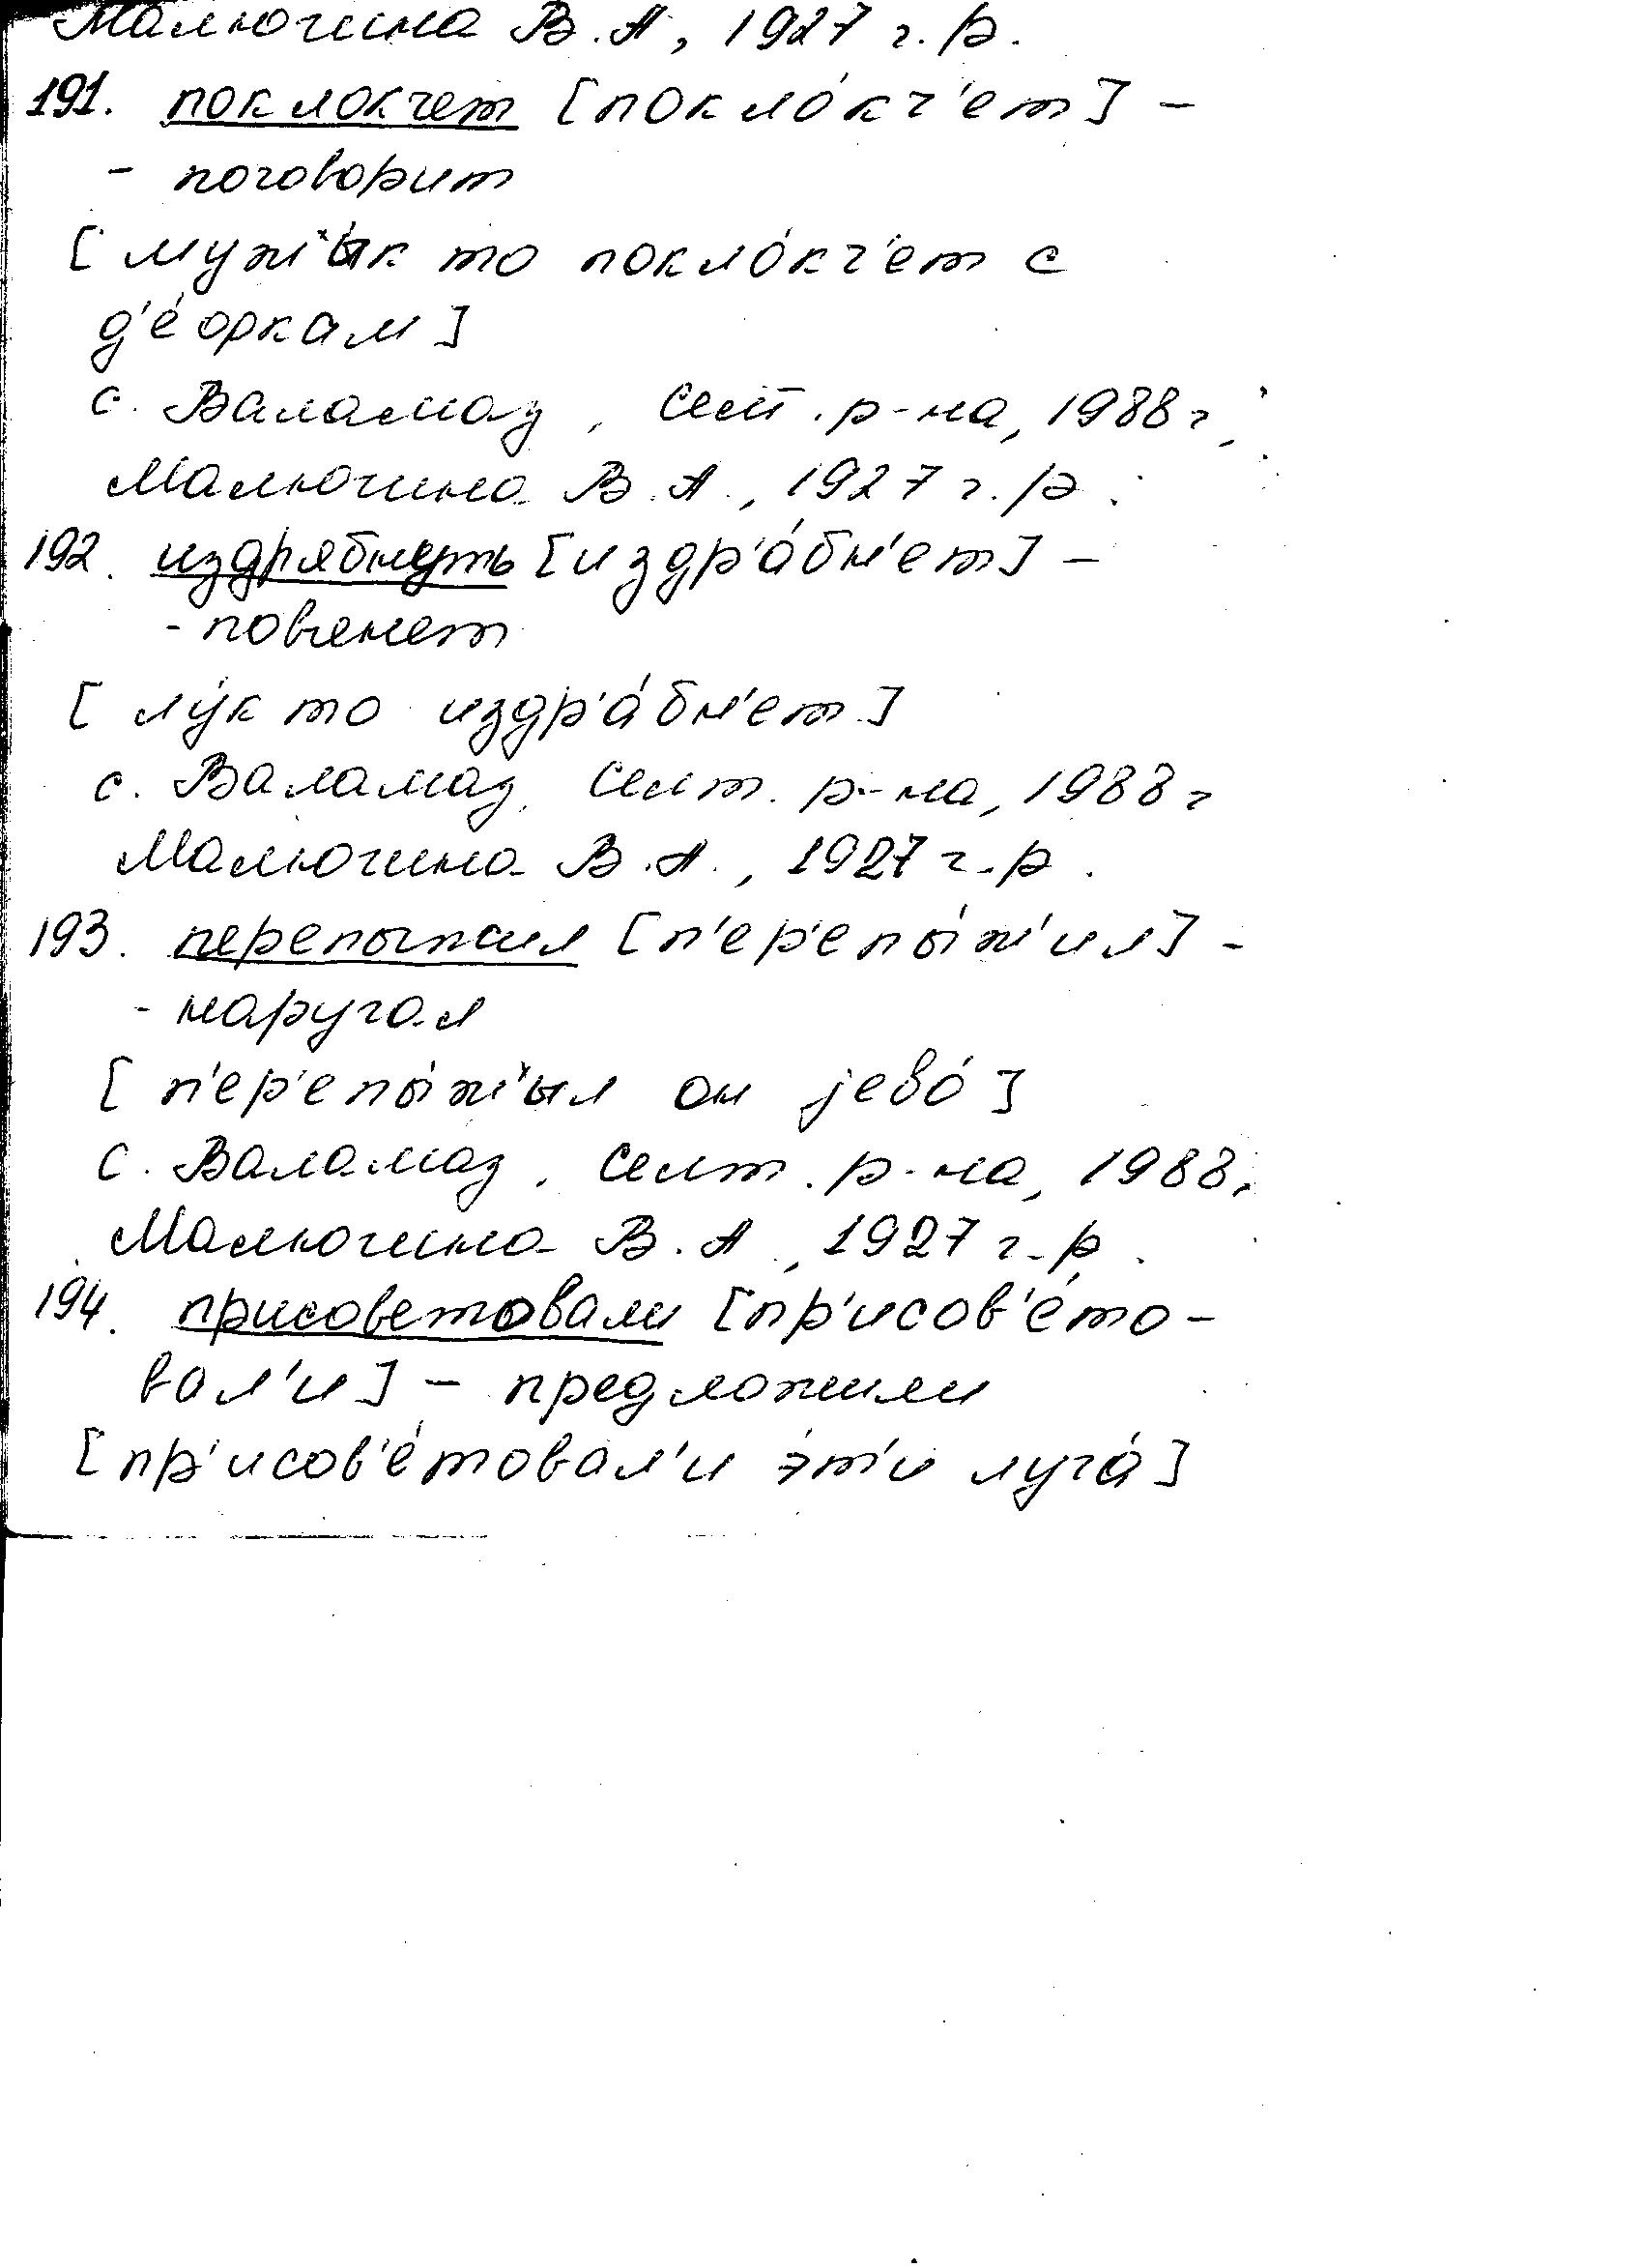 Малюгина В.А, 1927 г.р.
191. поклокчет [покло́кч'ет] -
- поговорит
[ муж'ы́к то покло́кч'ет с
д'е́воркам]
с. Валамаз, Селт. р-на, 1988 г,
Малюгина В.А., 1927 г.р.
192. издрябнуть [издр'а́бн'ет] -
- повянет
[ лу́к то издр'а́бн'ет]
с. Валамаз, Селт. р-на, 1988 г
Малюгина В.А., 1927 г.р.
193. перепыжил [п'ер'епы́ж'ил] -
- наругал
[ п'ер'епы́ж'ыл он јево́ ]
с. Валамаз, Селт. р-на, 1988,
Малюгина В.А, 1927 г.р.
194. присоветовали [пр'исов'е́то-
вал'и] - предложили
[пр'исов'е́товал'и э́т'и луга́]